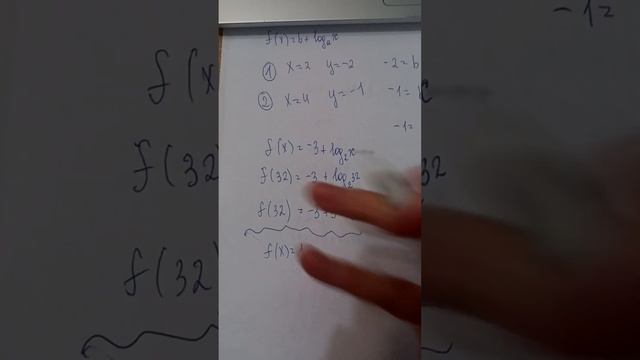 f(x)=b+logₐx
① x=2 y=-2 -2=b
② x=4 y=-1 -1=
-1=
f(x)=-3+log₂x
f(32)=-3+log₂32
f(32)=-3+
f(x)=